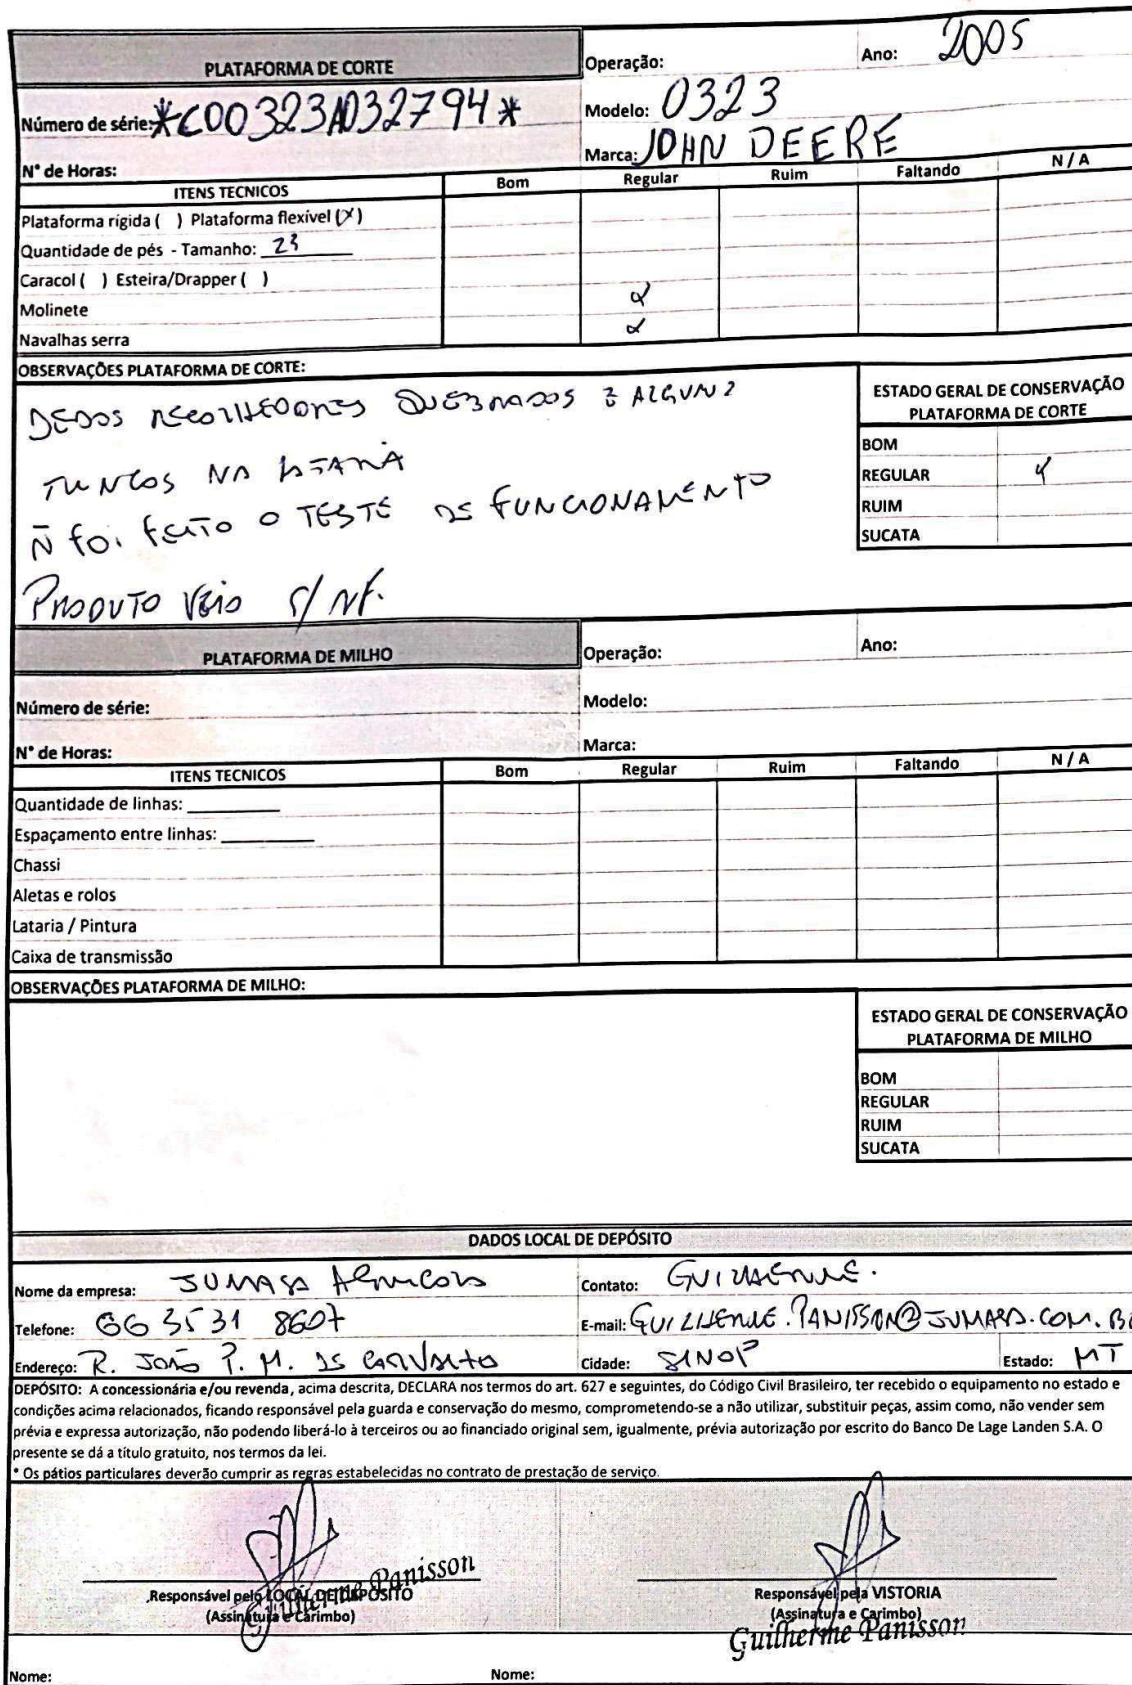 PLATAFORMA DE CORTE
Operação:
Ano: 2005
Número de série: *C00323A032794*
Modelo: 0323
Marca: JOHN DEERE
N° de Horas:
ITENS TECNICOS Bom Regular Ruim Faltando N / A
Plataforma rígida ( ) Plataforma flexível (X)
Quantidade de pés - Tamanho: 23
Caracol ( ) Esteira/Drapper ( )
Molinete X
Navalhas serra X
OBSERVAÇÕES PLATAFORMA DE CORTE:
DEDOS RECOLHEDORES QUEBRADOS E ALGUNS
NA
Ñ FOI FEITO O TESTE DE FUNCIONAMENTO
PRODUTO VEIO S/ NF.
ESTADO GERAL DE CONSERVAÇÃO
PLATAFORMA DE CORTE
BOM
REGULAR X
RUIM
SUCATA
PLATAFORMA DE MILHO
Operação:
Ano:
Número de série:
Modelo:
N° de Horas:
Marca:
ITENS TECNICOS Bom Regular Ruim Faltando N / A
Quantidade de linhas:
Espaçamento entre linhas:
Chassi
Aletas e rolos
Lataria / Pintura
Caixa de transmissão
OBSERVAÇÕES PLATAFORMA DE MILHO:
ESTADO GERAL DE CONSERVAÇÃO
PLATAFORMA DE MILHO
BOM
REGULAR
RUIM
SUCATA
DADOS LOCAL DE DEPÓSITO
Nome da empresa: JUMASA AGRICOLA
Contato: GUILHERME.
Telefone: 66 3531 8607
E-mail: GUILHERME.PANISSON@JUMASA.COM.BR
Endereço: R. JOÃO P. M. DE CARVALHO
Cidade: SINOP
Estado: MT
DEPÓSITO: A concessionária e/ou revenda, acima descrita, DECLARA nos termos do art. 627 e seguintes, do Código Civil Brasileiro, ter recebido o equipamento no estado e
condições acima relacionados, ficando responsável pela guarda e conservação do mesmo, comprometendo-se a não utilizar, substituir peças, assim como, não vender sem
prévia e expressa autorização, não podendo liberá-lo à terceiros ou ao financiado original sem, igualmente, prévia autorização por escrito do Banco De Lage Landen S.A. O
presente se dá a título gratuito, nos termos da lei.
* Os pátios particulares deverão cumprir as regras estabelecidas no contrato de prestação de serviço.
Responsável pelo LOCAL DE DEPÓSITO
(Assinatura e Carimbo)
Guilherme Panisson
Responsável pela VISTORIA
(Assinatura e Carimbo)
Guilherme Panisson
Nome:
Nome: